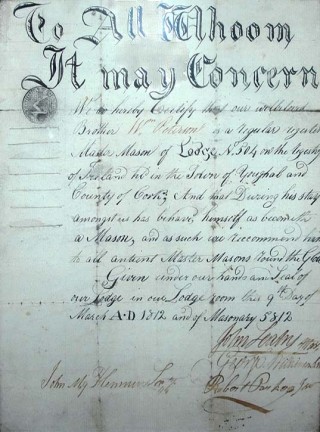 To All Whoom
It may Concern
We do hereby Certify that our wellbeloved
Brother Wm is a regular registr
Master Mason of Lodge N. 504 on the registry
of Ireland held in the Town of Youghal and
County of Cork, And that During his stay
amongst us has behaved himself as becometh
a Mason, and as such we recommend him
to all antient Master Masons Round the Globe
Given under our hands and Seal of
our Lodge in our Lodge room this 9th Day of
March A.D 1812 and of Masonary 5812
John
George
John Secy Robert Jun